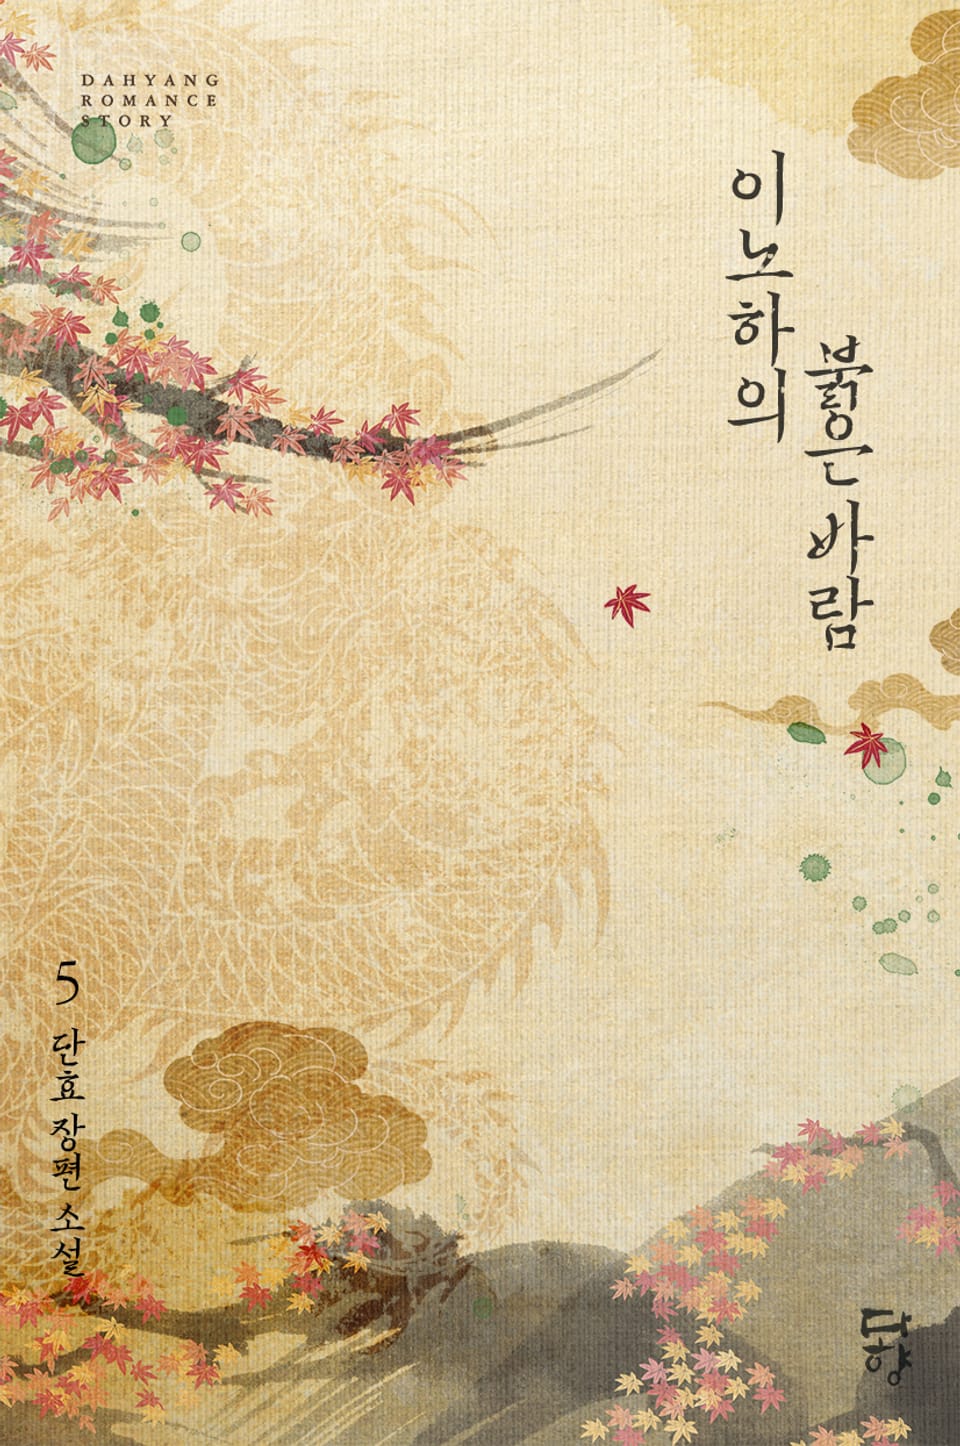 DAHYANG
ROMANCE
STORY
이노하의
붉은 바람
5 단효 장편 소설
다향